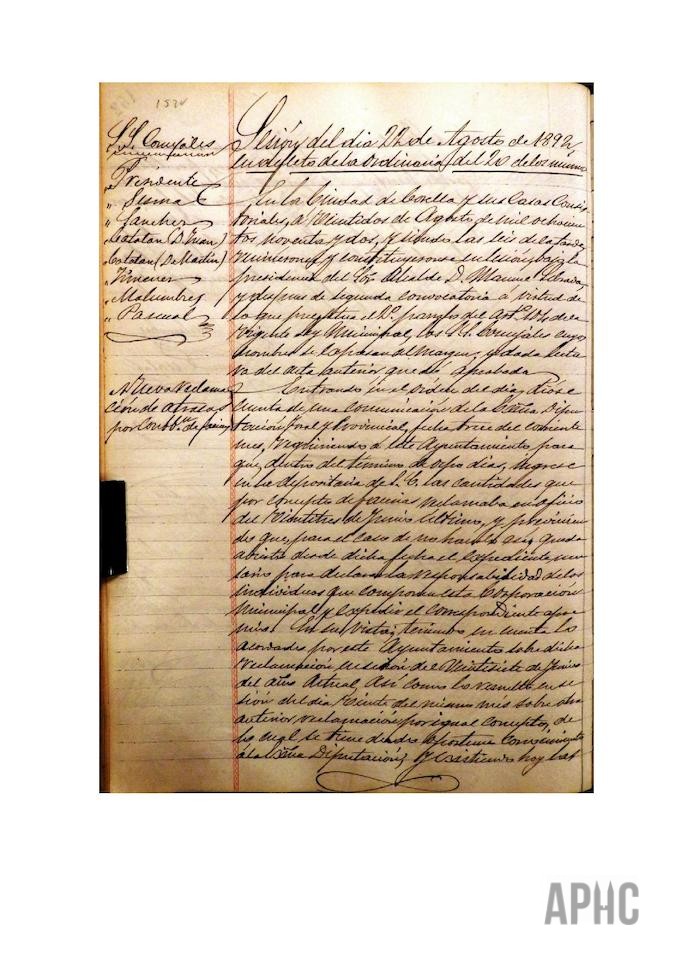 152v
SS. Concejales
Presidente
" Sesma
" Sanchez
" Catalan (D. Juan)
" Catalan (D. Martin)
" Jimenez
" Malumbres
" Pascual
Nueva reclama
ción de atrasos
por
Sesión del dia 22 de Agosto de 1892,
en defecto de la ordinaria del 20 de los mismos
En la Ciudad de Corella y sus Casas Consis
toriales, a Veintidos de Agosto de mil ochocien
tos noventa y dos, y siendo las seis de la tarde,
reunieronse y constituyeronse en sesión bajo la
presidencia del Sor Alcalde D. Manuel
y despues de segunda convocatoria a virtud de
lo que preceptua el parrafo del Art. 104 de la
vigente Ley Municipal, los SS. Concejales cuyos
nombres se expresan al margen, y dada lectu
ra del acta anterior quedó aprobada.
Entrando en el órden del dia, dióse
cuenta de una comunicación de la Excma. Dipu
tación foral y Provincial, fecha trece del corriente
mes, requiriendo a este Ayuntamiento para
que dentro del termino de ocho dias, ingrese
en la depositaria de S. E. las cantidades que
por concepto de reclamaba en oficio
del Veintitres de Junio último, y previnien
do que, para el caso de no hacerlo asi, queda
abierto desde dicha fecha el expediente nece
sario para declarar la responsabilidad de los
individuos que componen esta Corporación
Municipal y expedir el correspondiente apre
mio. En su vista, teniendo en cuenta lo
acordado por este Ayuntamiento sobre dicha
reclamación en sesión del Veintisiete de Junio
del año actual, asi como lo resuelto en se
sión del dia Veinte del mismo mes sobre otra
anterior reclamación por igual concepto, de
lo cual se tiene dado oportuno conocimiento
á la Excma Diputación; y existiendo hoy las
APHC